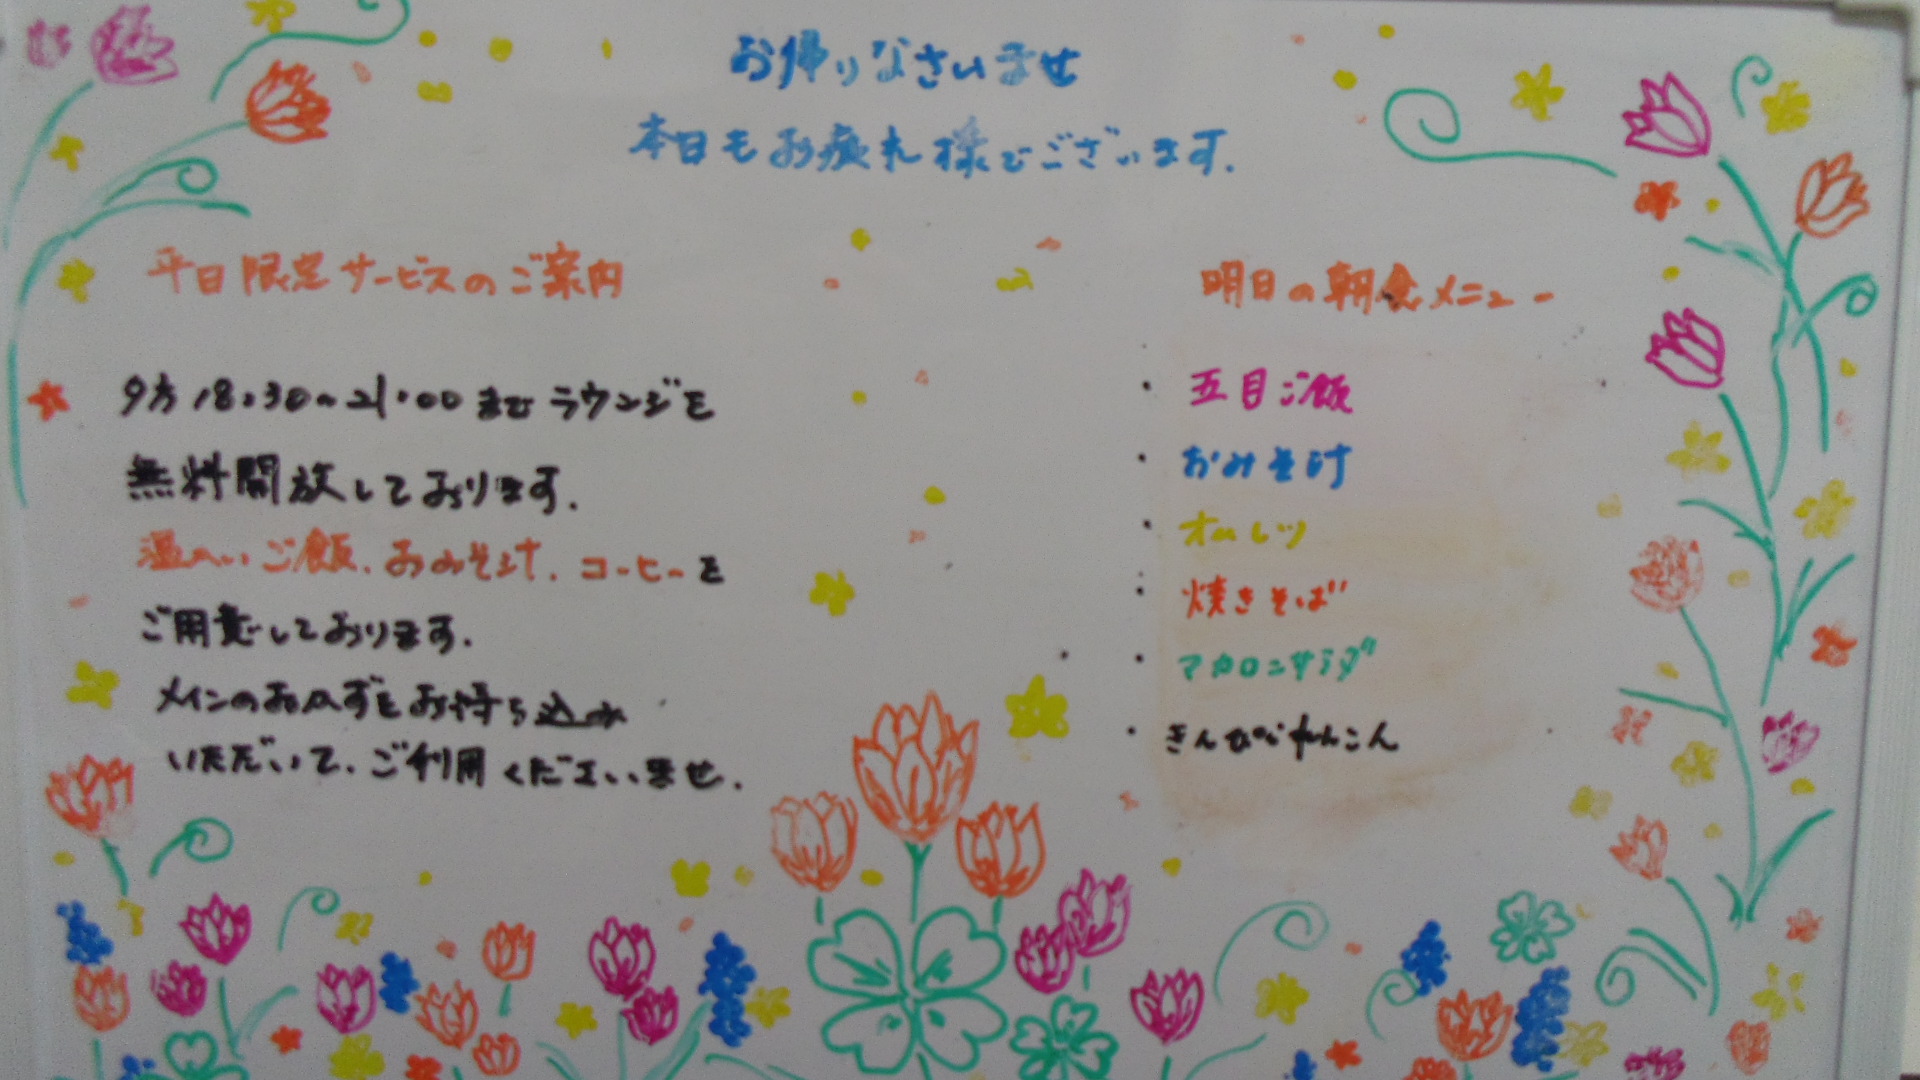 お帰りなさいませ
本日もお疲れ様でございます.
平日限定サービスのご案内
夕方 18:30~21:00 まで ラウンジを
無料開放しております.
温かいご飯、おみそ汁、コーヒーを
ご用意しております.
メインのおかずをお持ち込み
いただいて、ご利用くださいませ.
明日の朝食メニュー
・五目ご飯
・おみそ汁
・オムレツ
・焼きそば
・マカロニサラダ
・きんぴられんこん